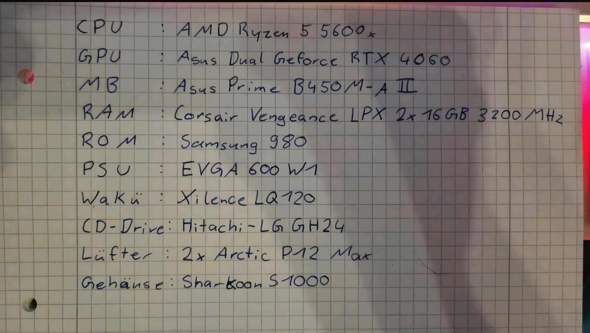 CPU : AMD Ryzen 5 5600x
GPU : Asus Dual Geforce RTX 4060
MB : Asus Prime B450M-A II
RAM : Corsair Vengeance LPX 2x16GB 3200MHz
ROM : Samsung 980
PSU : EVGA 600 W1
Wakü : Xilence LQ120
CD-Drive: Hitachi-LG GH24
Lüfter : 2x Arctic P12 Max
Gehäuse : Sharkoon S1000